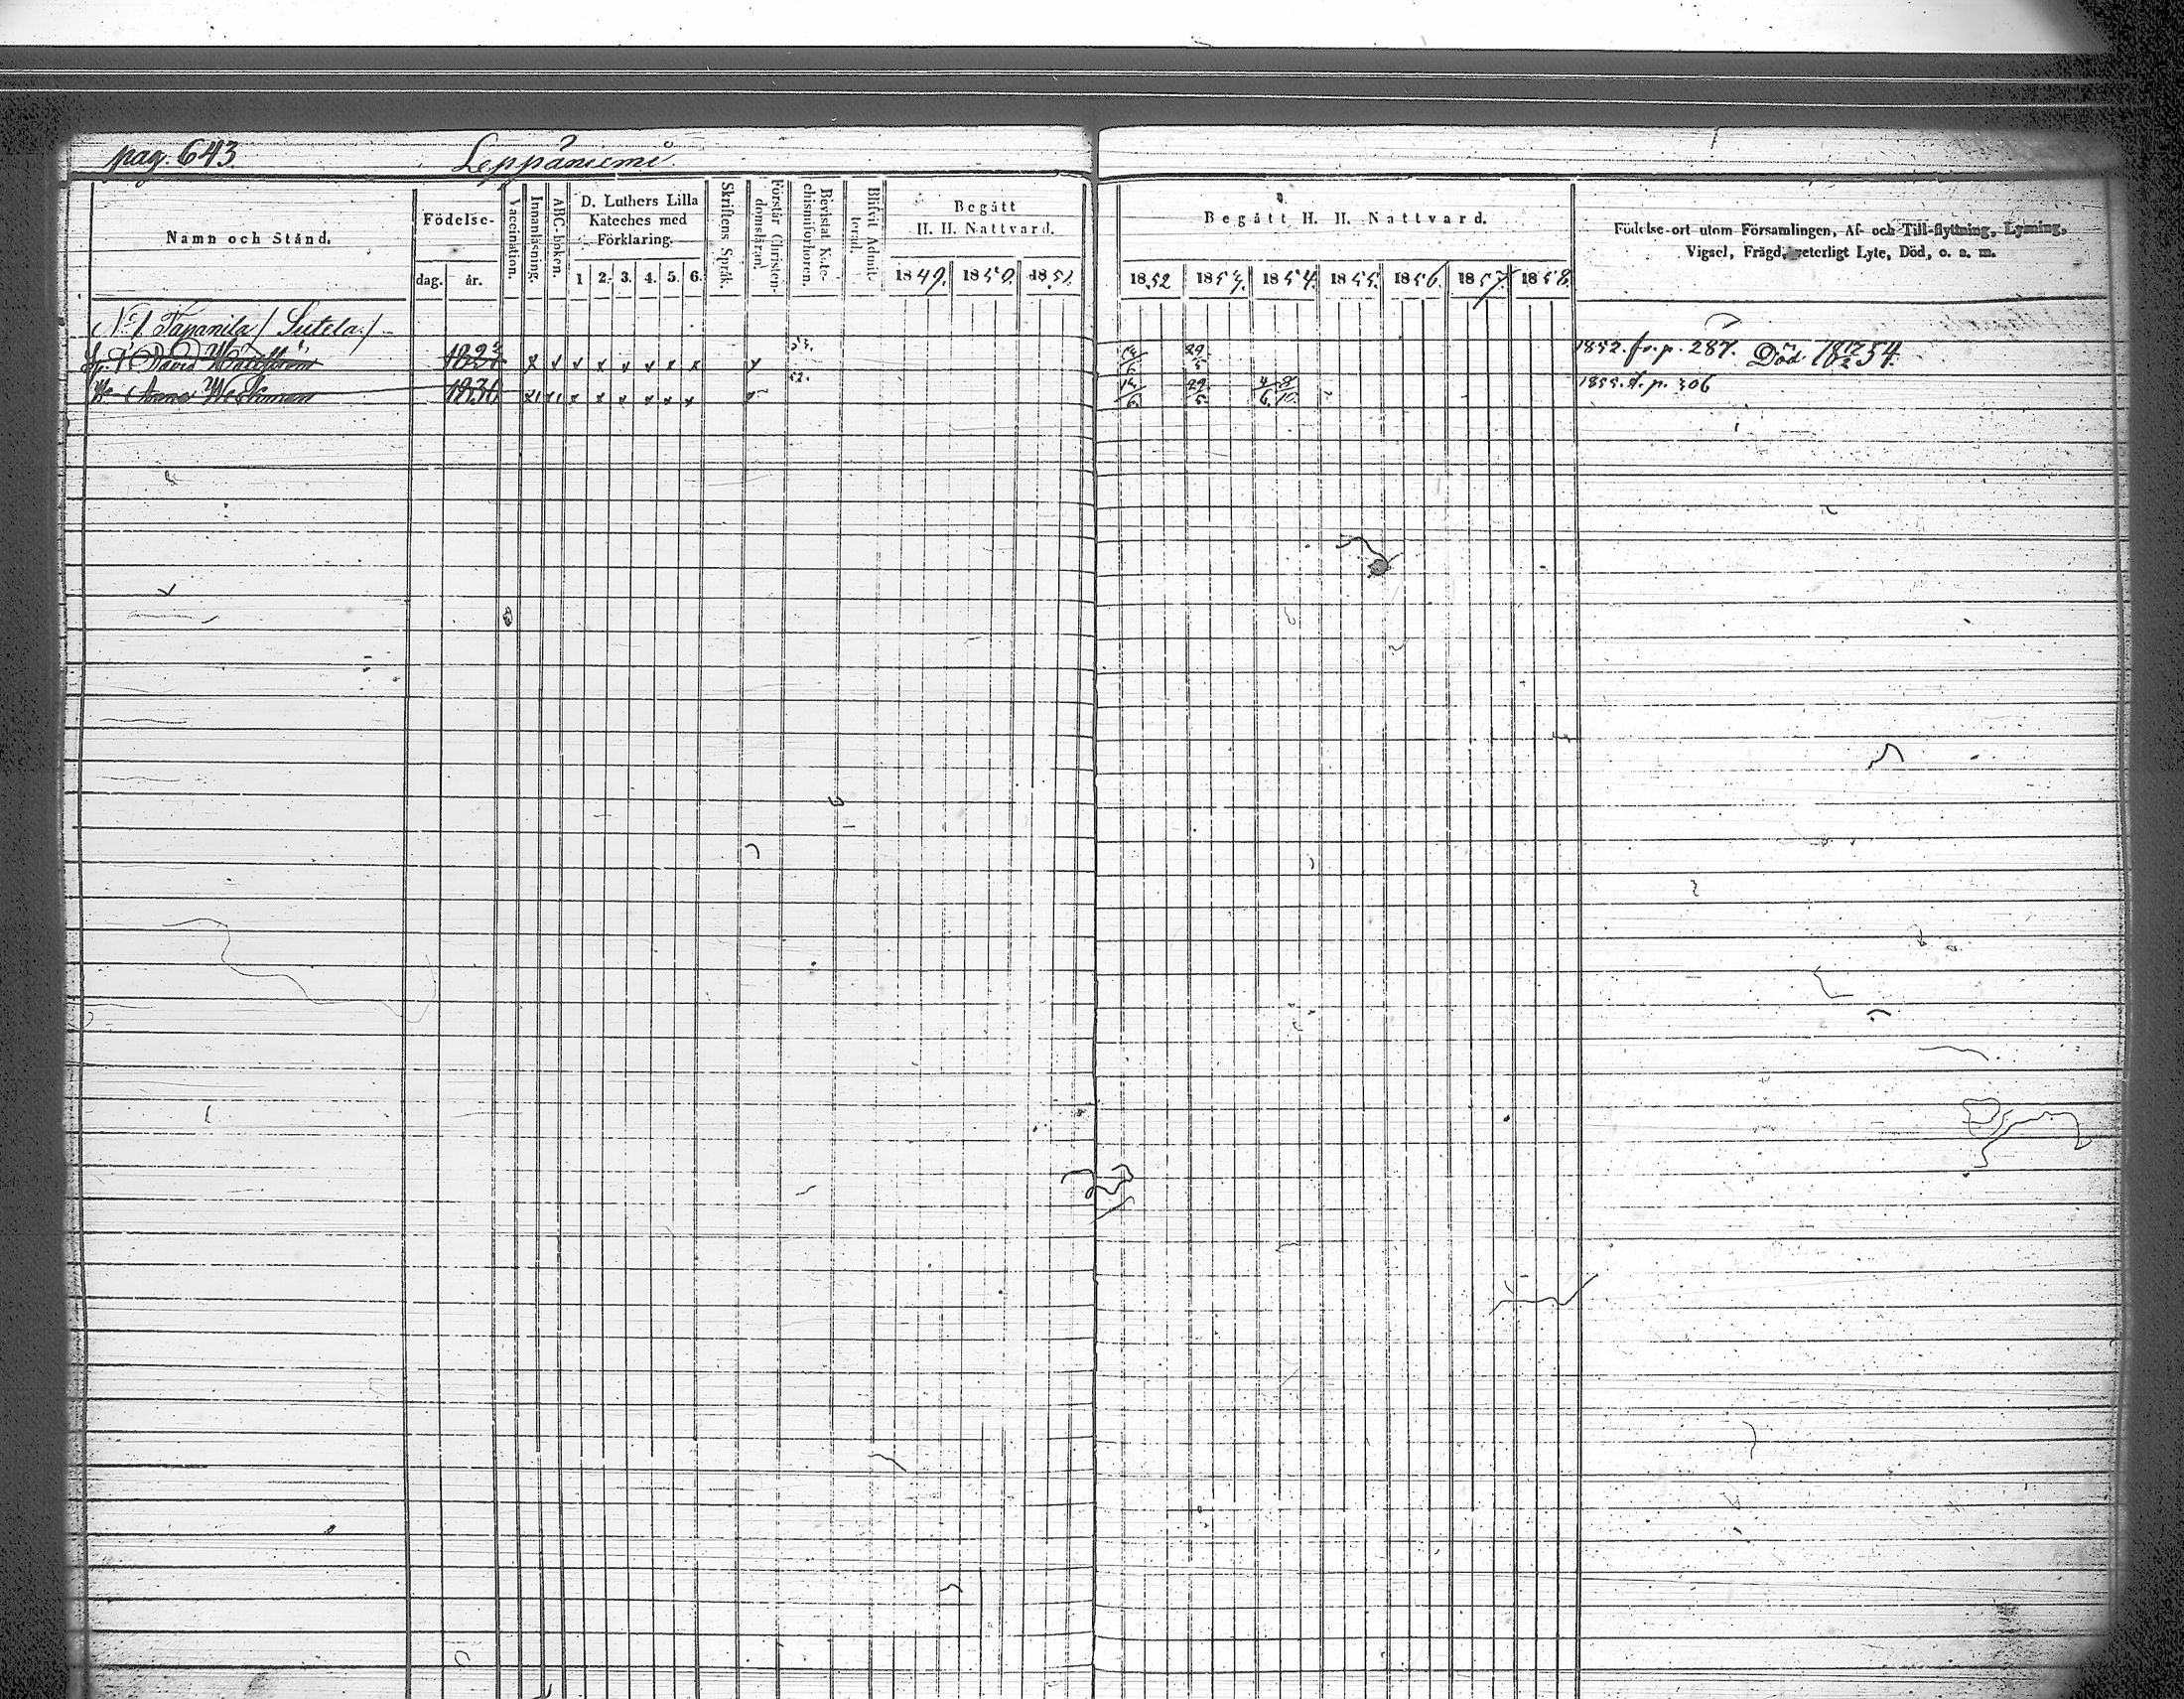 pag. 643 Leppäniemi
Namn och Stånd.
Födelse-
dag. år.
Vaccination.
Innanläsning.
ABC-boken.
D. Luthers Lilla
Kateches med
Förklaring.
1 2. 3. 4. 5. 6.
Skriftens Språk.
Förstår Christen-
domsläran.
Bevistat Kate-
chismiförhören.
Blifvit Admit-
terad.
Begått
H. H. Nattvard.
1849. 1850. 1851.
Begått H. H. Nattvard.
1852 1853. 1854. 1855. 1856. 1857 1858.
Födelse-ort utom Församlingen, Af- och Till-flyttning, Lysning,
Vigsel, Frägd, veterligt Lyte, Död, o. s. m.
N:o 1. Tapanila / Sutela /
David 53. 14/6 29/5 1852. fr. p. 287. Död 18 12/2 54.
Anna 1831 52. 14/6 29/5 4/6 8/10 1855. t. p. 306